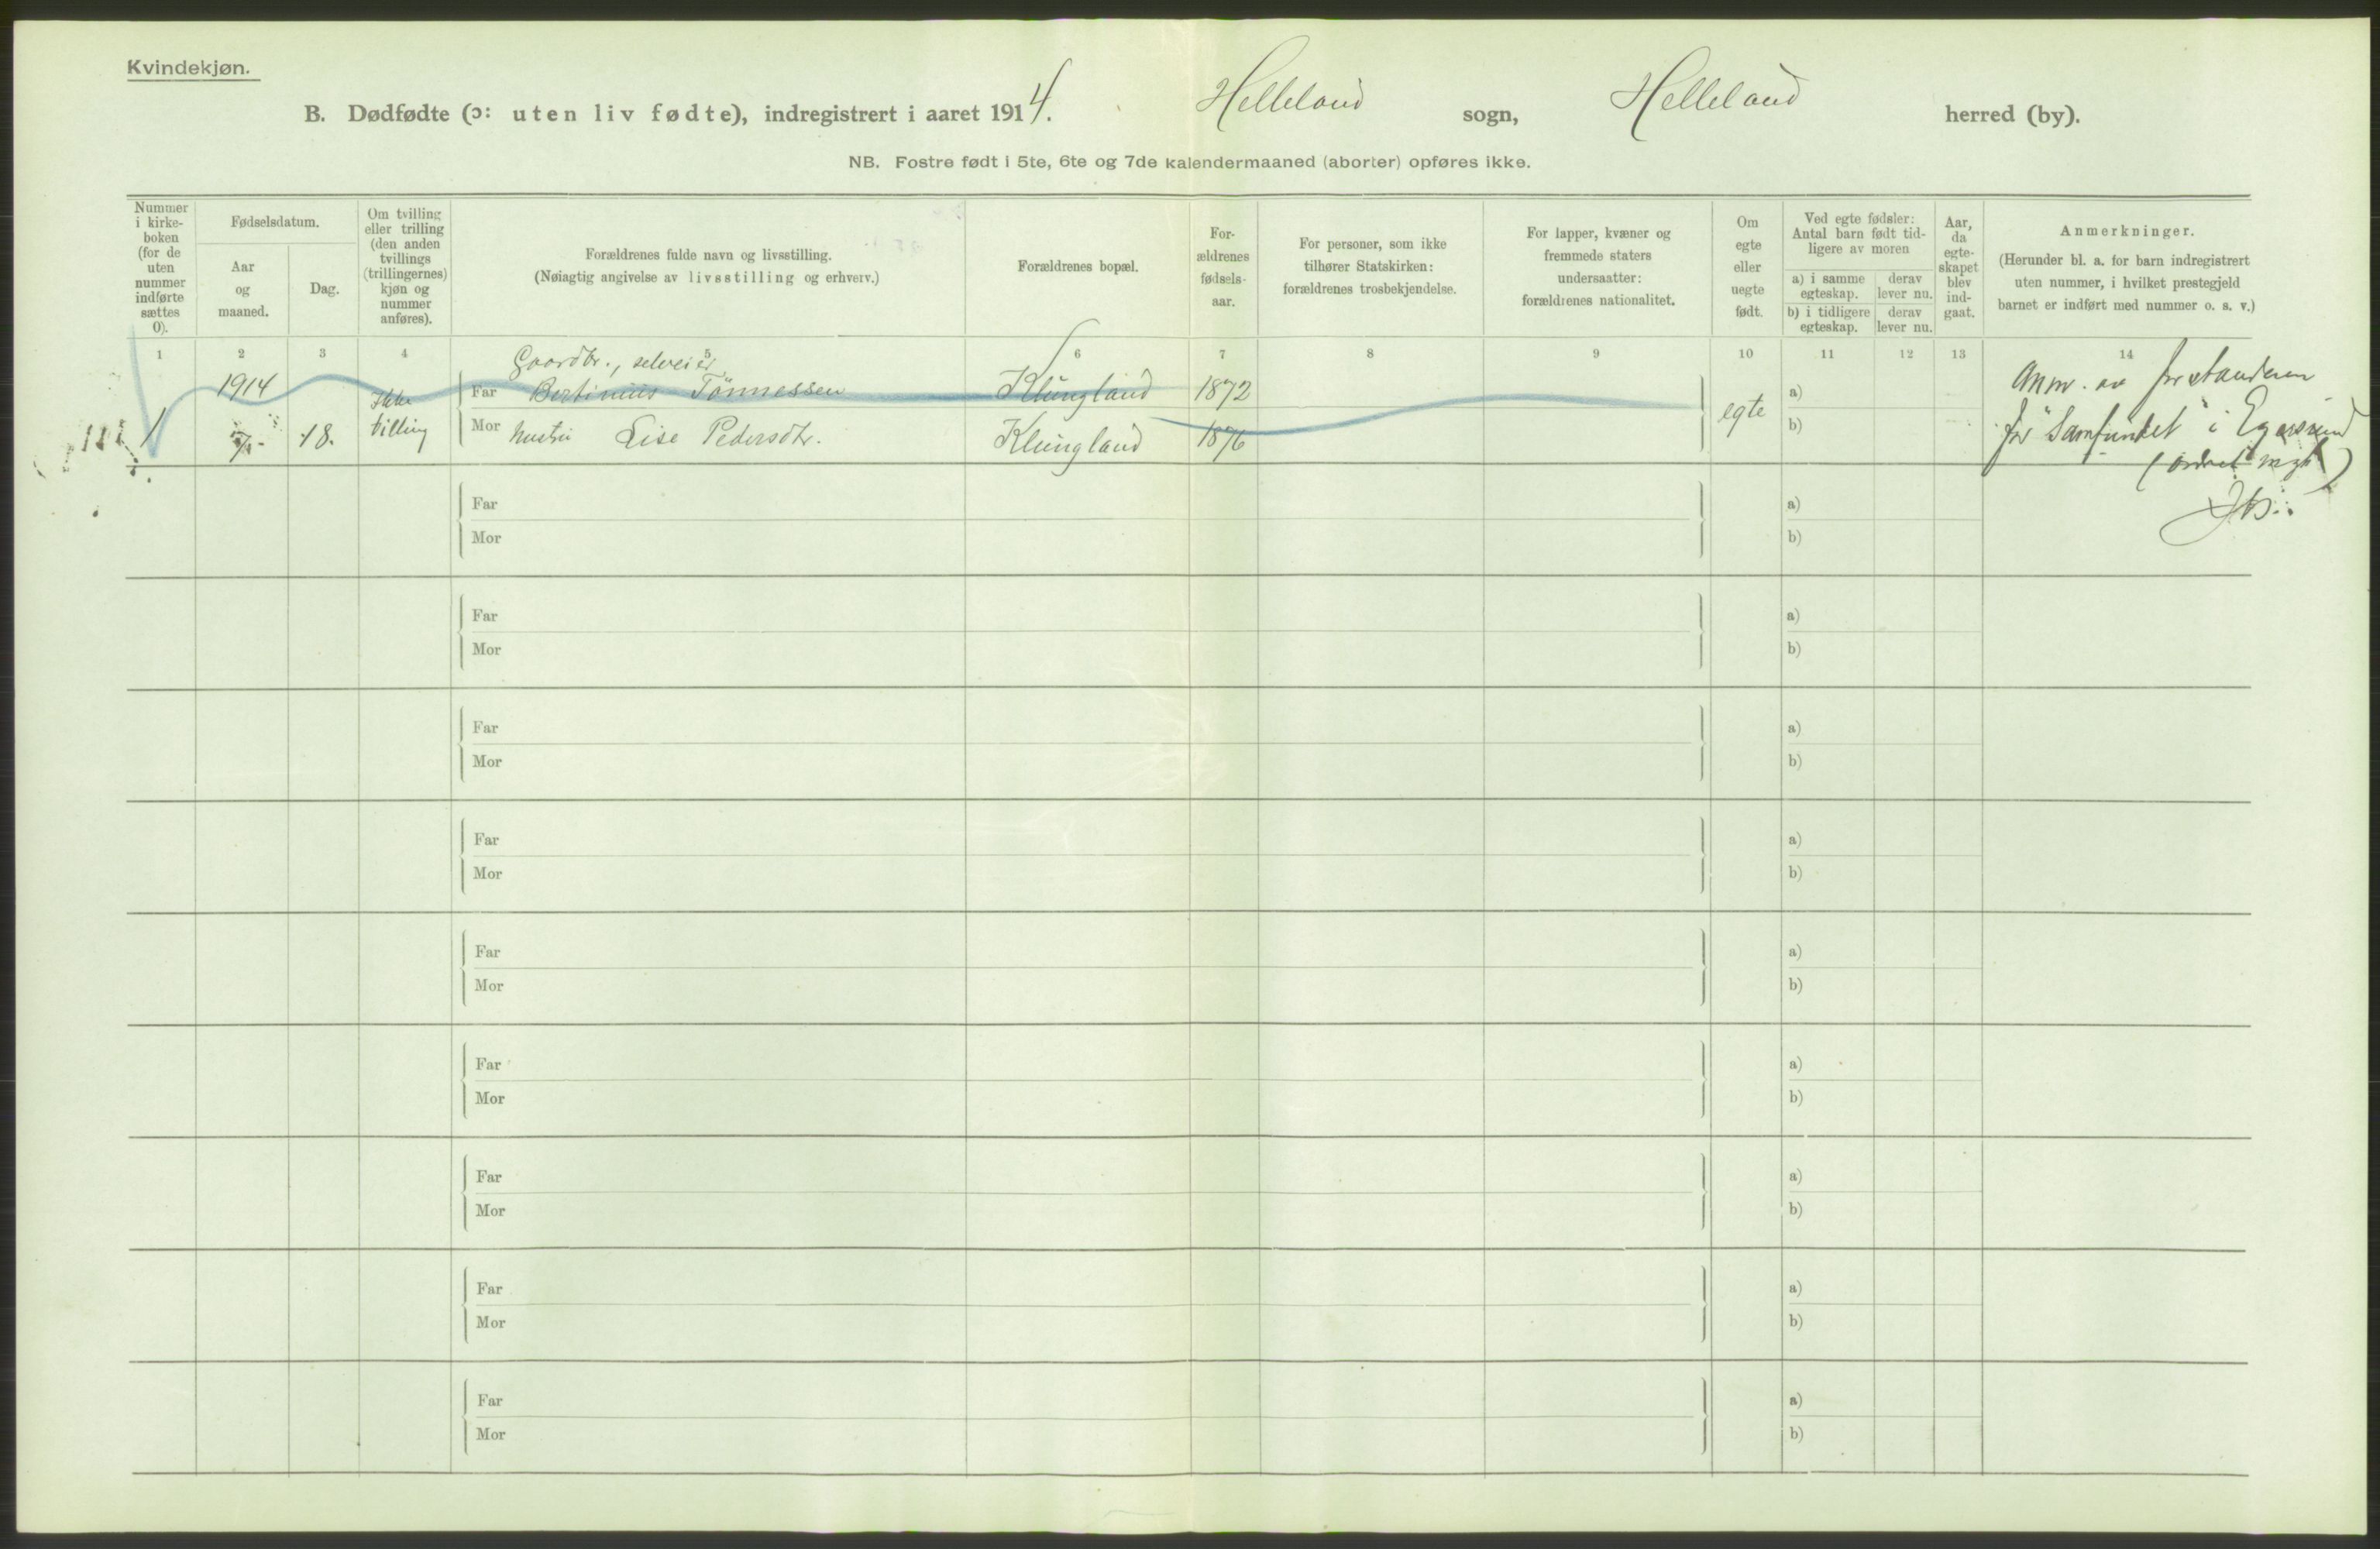 Kvindekjøn.
B. Dødfødte (ɔ: uten liv fødte), indregistrert i aaret 1914. Helleland sogn, Helleland herred (by).
NB. Fostre født i 5te, 6te og 7de kalendermaaned (aborter) opføres ikke.
Nummer i kirke-boken (for de uten nummer indførte sættes 0).
Fødselsdatum.
Aar og maaned.
Dag.
Om tvilling eller trilling (den anden tvillings (trillingernes) kjøn og nummer anføres).
Forældrenes fulde navn og livsstilling.
(Nøiagtig angivelse av livsstilling og erhverv.)
Forældrenes bopæl.
For-ældrenes fødsels-aar.
For personer, som ikke tilhører Statskirken: forældrenes trosbekjendelse.
For lapper, kvæner og fremmede staters undersaatter: forældrenes nationalitet.
Om egte eller uegte født.
Ved egte fødsler: Antal barn født tid-ligere av moren
a) i samme egteskap.
derav lever nu.
b) i tidligere egteskap.
derav lever nu.
Aar, da egte-skapet blev ind-gaat.
Anmerkninger.
(Herunder bl. a. for barn indregistrert uten nummer, i hvilket prestegjeld barnet er indført med nummer o. s. v.)
1 2 3 4 5 6 7 8 9 10 11 12 13 14
Gaardbr., selveier
1 1914 18. Ikke tvilling
Far Bertinius Tönnessen Klungland 1872 a)
Mor hustru Lise Pedersdtr. Klungland 1876 egte b)
Anm. av forstanderen
for "Samfundet" i Egersund
Far a)
Mor b)
Far a)
Mor b)
Far a)
Mor b)
Far a)
Mor b)
Far a)
Mor b)
Far a)
Mor b)
Far a)
Mor b)
Far a)
Mor b)
Far a)
Mor b)